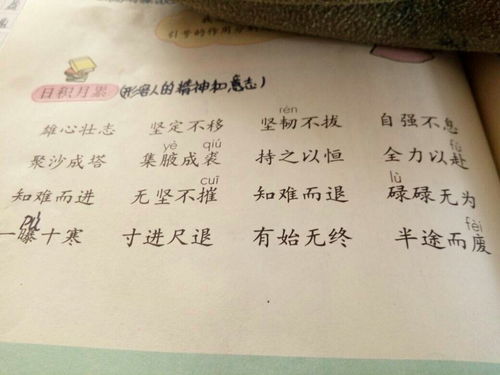 引号的作用
日积月累 (形容人的精神和意志)
rèn
雄心壮志 坚定不移 坚韧不拔 自强不息
yè qiú fù
聚沙成塔 集腋成裘 持之以恒 全力以赴
cuī lù
知难而进 无坚不摧 知难而退 碌碌无为
fèi
一曝十寒 寸进尺退 有始无终 半途而废